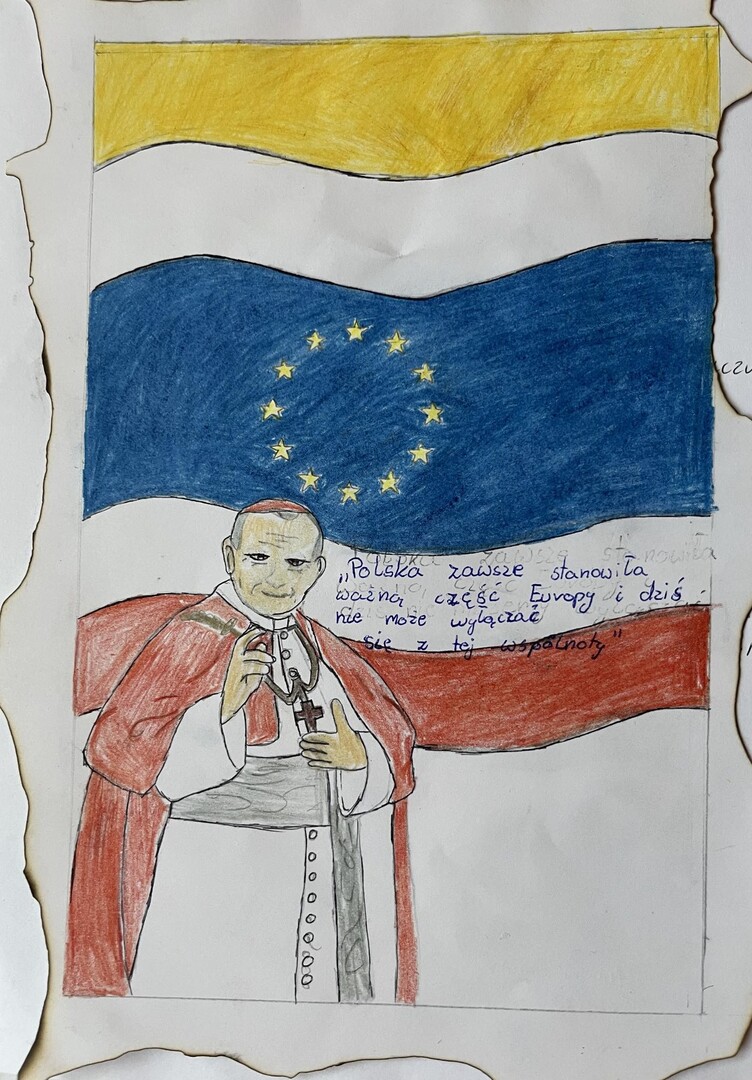 „Polska zawsze stanowiła
ważną część Europy i dziś
nie może wyłączać
się z tej wspólnoty"